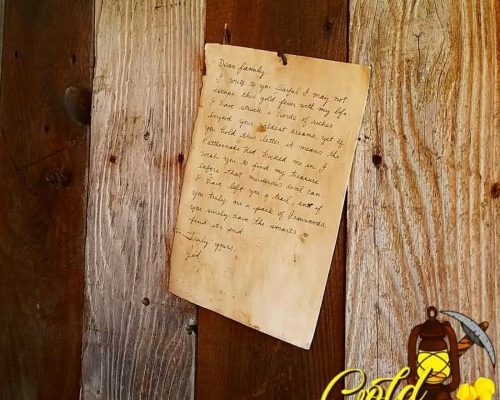 Dear family,
I write to you fearful I may not
escape this gold fever with my life.
I have struck a horde of riches
beyond your wildest dreams, yet if
you hold this letter it means the
Rattlesnake Kid kicked me in. I
wish you to find my treasure
before that murderous devil can.
I have left you a trail, and if
you truly are a pack of Ironwoods,
you surely have the smarts to
find its end.
Truly yours,
Jed
Gold